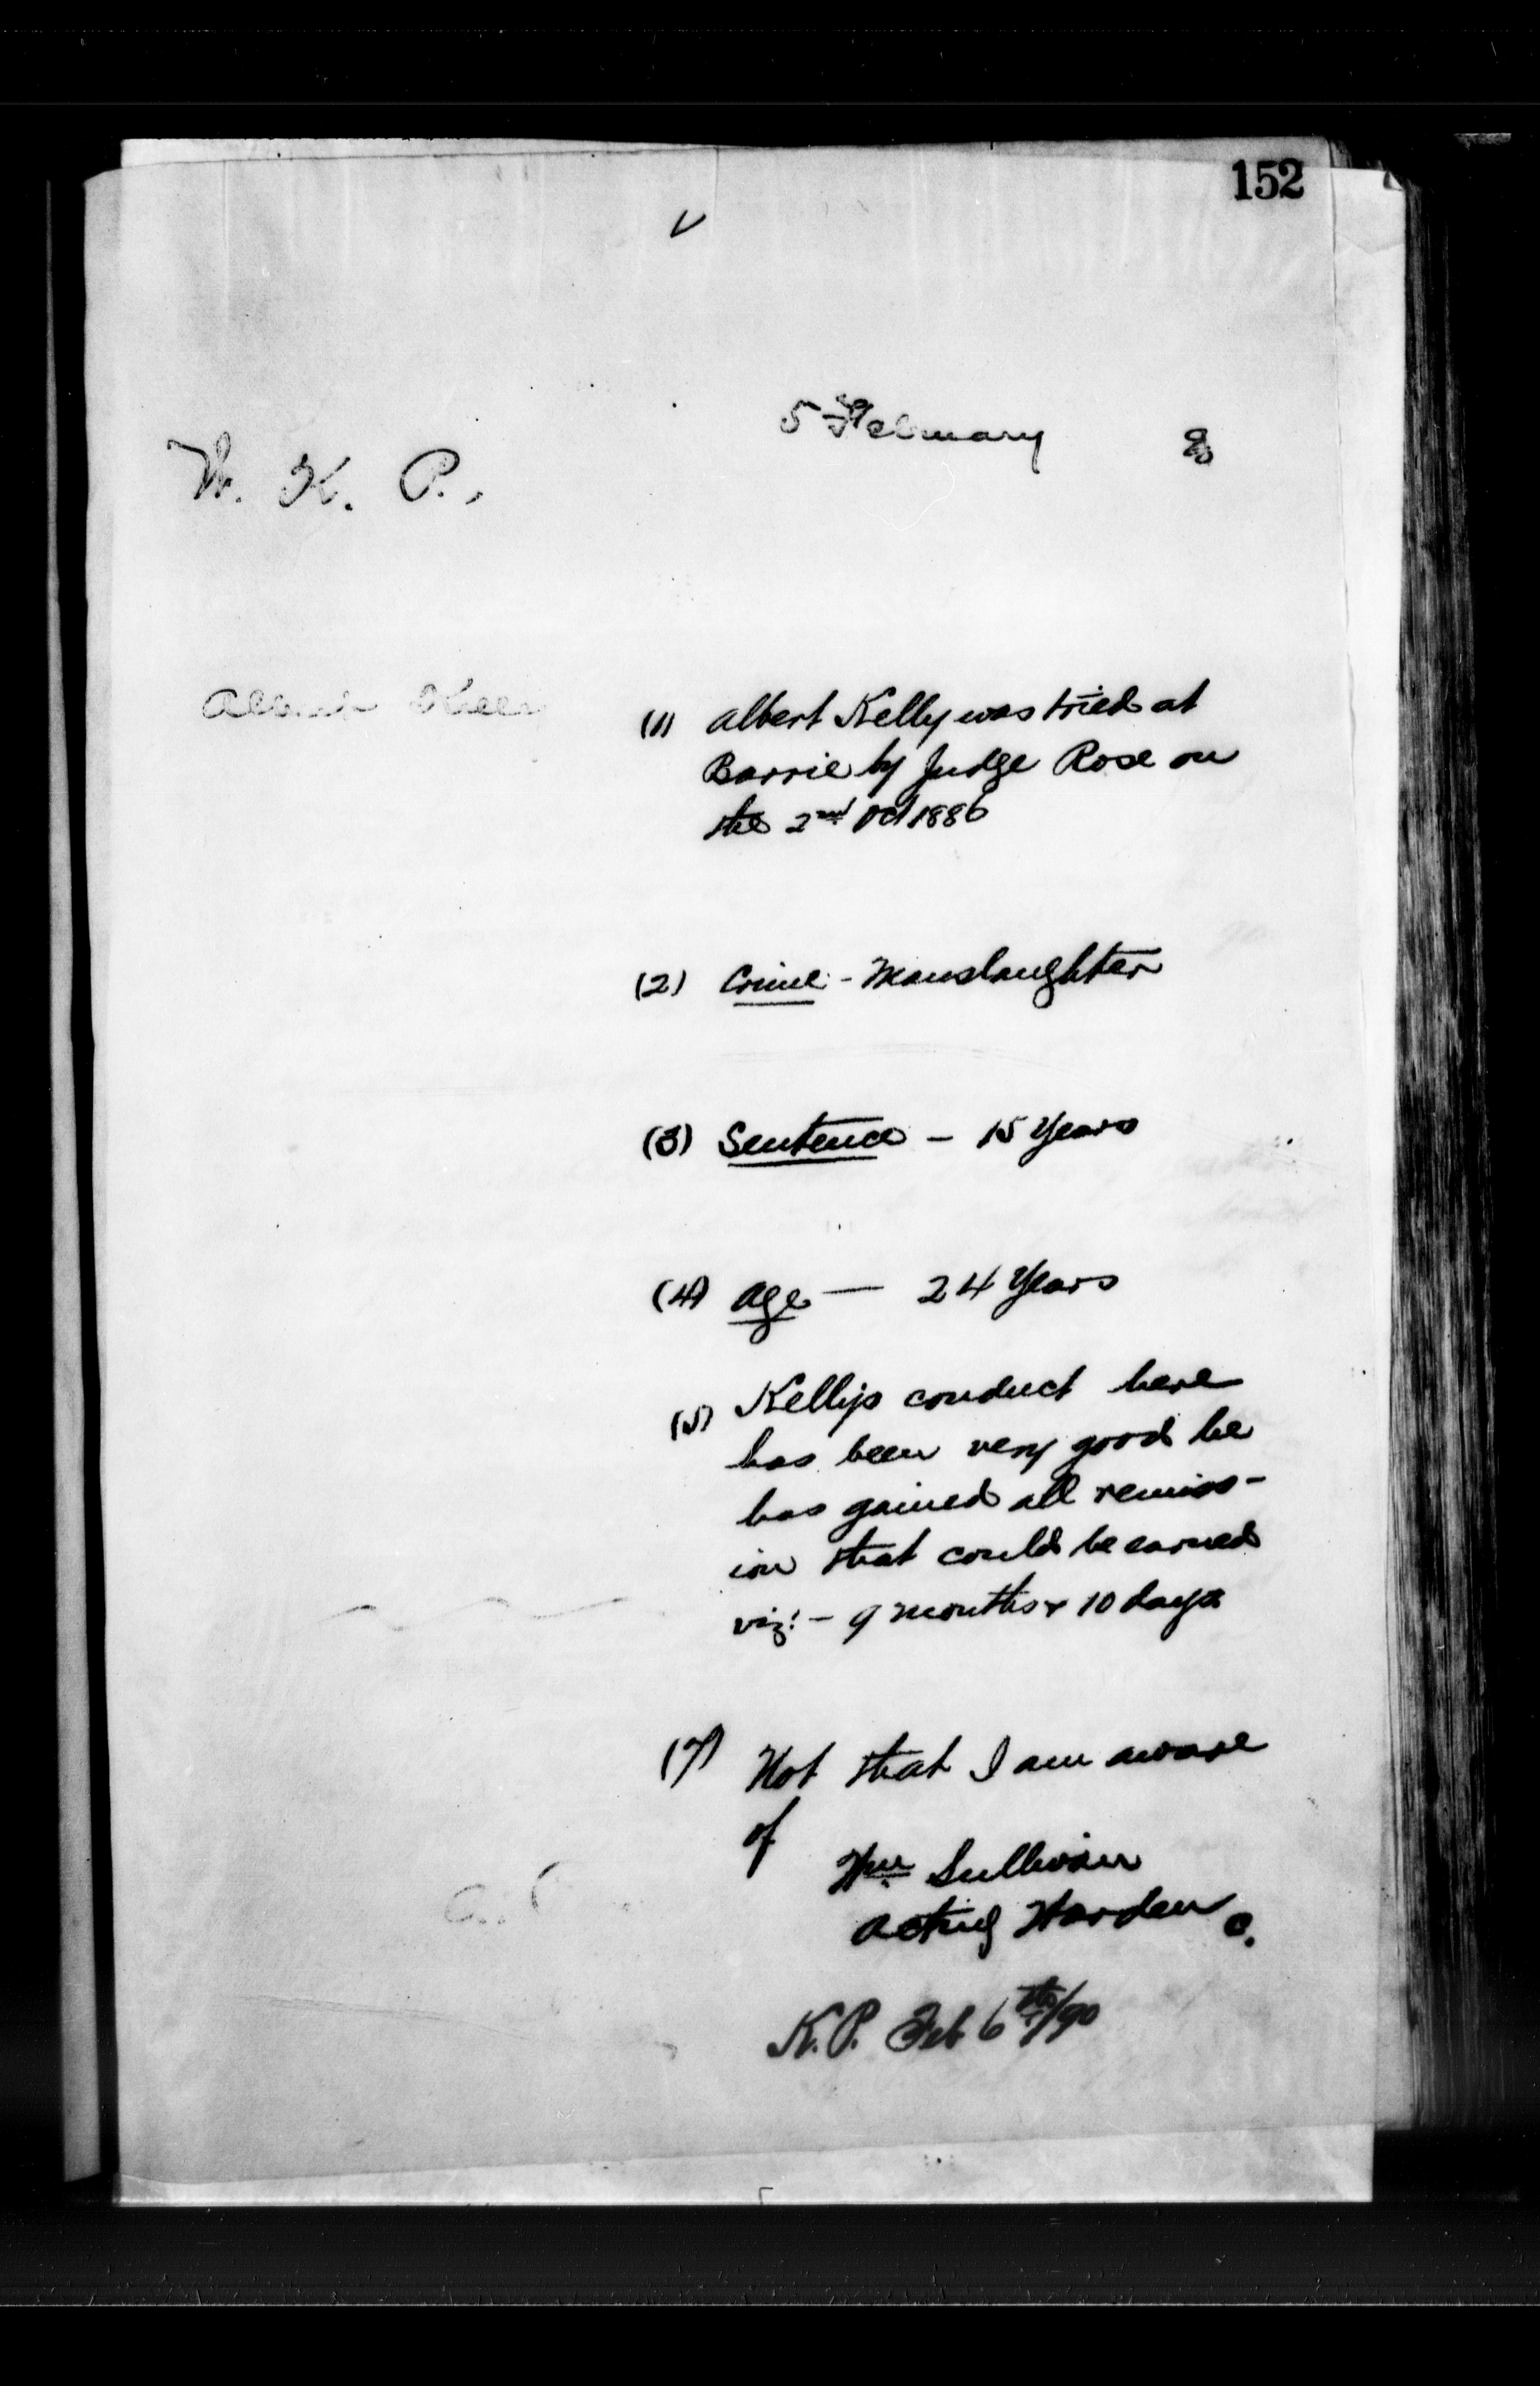 152
5 February
W. K. P.,
Albert
(1) Albert Kelly was tried at
Barrie by Judge Rose on
the 2nd Oct 1886
(2) Crime - Manslaughter
(3) Sentence - 15 Years
(4) Age - 24 Years
(5) Kellys conduct here
has been very good he
has gained all remiss-
ion that could be earned
viz: - 9 months & 10 days
(7) Not that I am aware
of
Wm Sullivan
Acting Warden
K.P. Feb 6th/90